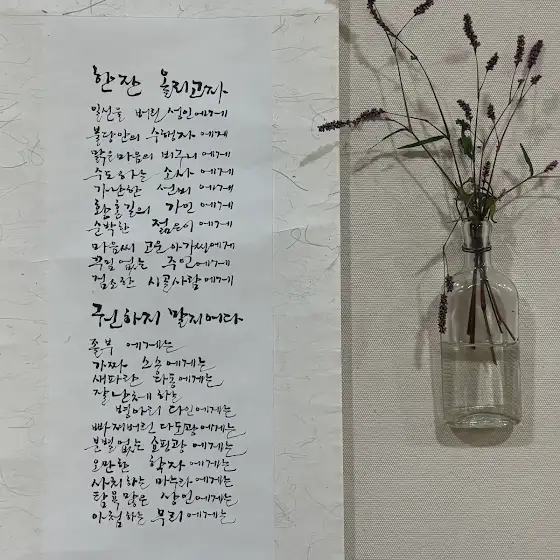 한잔 올리고자
일선을 버린 성인에게
불당안의 수행자에게
맑은마음의 비구니에게
수도하는 소사에게
가난한 선비에게
황혼길의 가인에게
순박한 젊은이에게
마음씨 고운아가씨에게
꾸밈없는 주인에게
검소한 시골사람에게
권하지 말지어다
졸부에게는
가짜 스승에게는
새파란 다동에게는
잘난체하는
병아리 다인에게는
빠져버린 다도광에게는
분별없는 쇼핑광에게는
오만한 학자에게는
사치하는 마누라에게는
탐욕많은 상인에게는
아첨하는 무리에게는